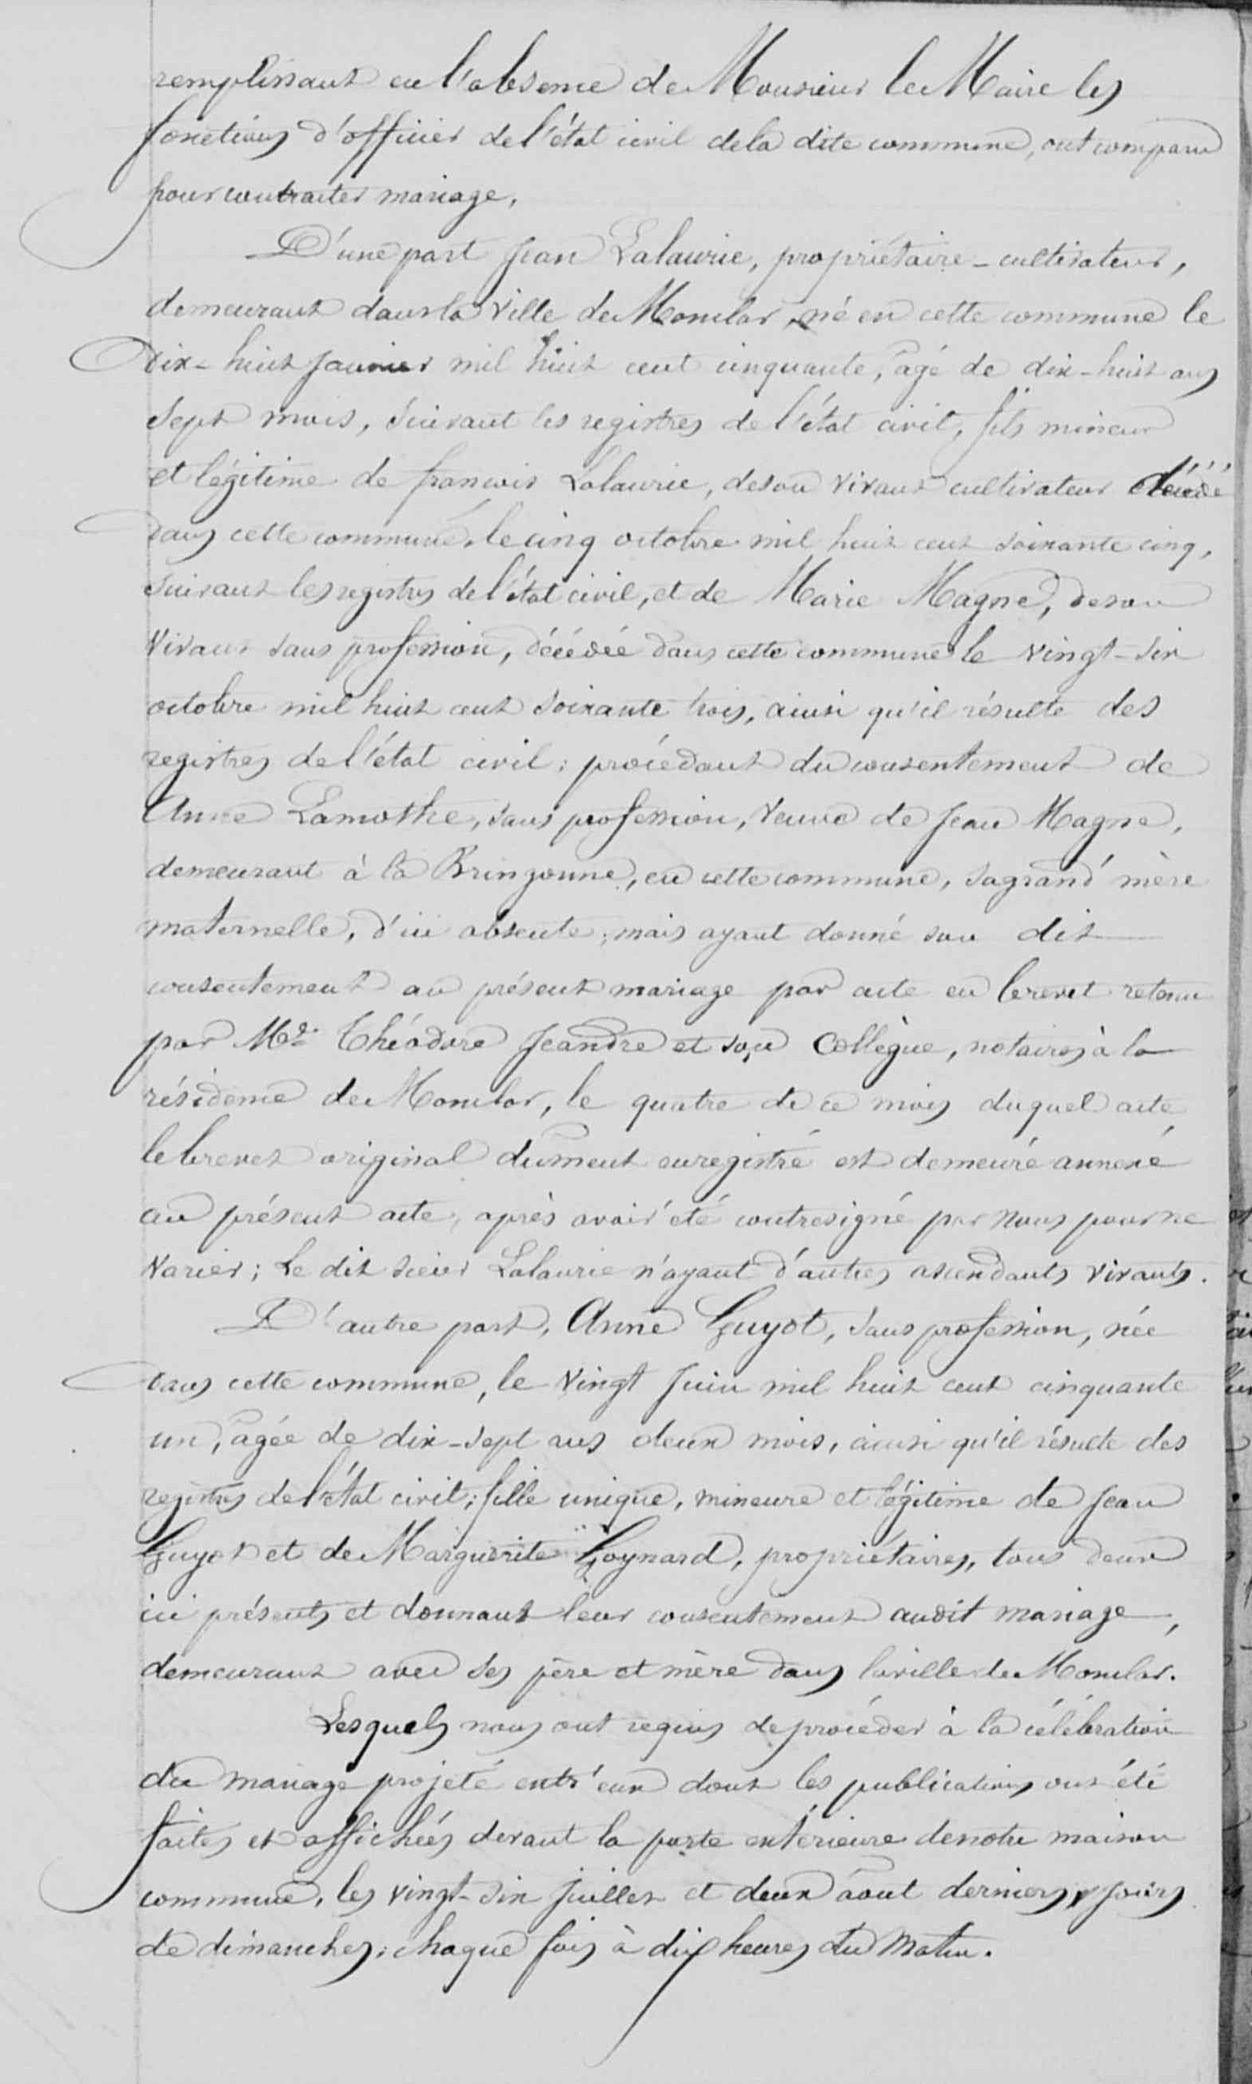 remplissant en l'absence de Monsieur le Maire les
fonctions d'officier de l'état civil de la dite commune, ont comparu
pour contracter mariage.
D'une part Jean Lalaurie, propriétaire-cultivateur,
demeurant dans la ville de Monclar, né en cette commune le
Dix-huit Janvier mil huit cent cinquante, âgé de dix-huit ans
sept mois, suivant les registres de l'état civil, fils mineur
et légitime de françois Lalaurie, de son vivant cultivateur décédé
dans cette commune, le cinq octobre mil huit cent soixante cinq,
suivant les registres de l'état civil, et de Marie Magne, de son
vivant sans profession, décédée dans cette commune le vingt-six
octobre mil huit cent soixante trois, ainsi qu'il résulte des
registres de l'état civil; procédant du consentement de
Anne Lamothe, sans profession, veuve de Jean Magne,
demeurant à la Bringonne, en cette commune, sa grand'mère
maternelle, d'ici absente; mais ayant donné son dit
consentement au présent mariage par acte en brevet retenu
par Me Théodore Jeandre et son Collègue, notaires à la
résidence de Monclar, le quatre de ce mois duquel acte
le brevet original dument enregistré est demeuré annexé
au présent acte, après avoir été contresigné par nous pour ne
varier; le dit sieur Lalaurie n'ayant d'autres ascendants vivants.
D'autre part, Anne Guyot, sans profession, née
dans cette commune, le vingt Juin mil huit cent cinquante
un, âgée de dix-sept ans deux mois, ainsi qu'il résulte des
registres de l'état civil; fille unique, mineure et légitime de Jean
Guyot et de Marguerite Goynard, propriétaires, tous deux
ici présents et donnant leur consentement audit mariage,
demeurant avec ses père et mère dans la ville de Monclar.
Lesquels nous ont requis de procéder à la célébration
du mariage projeté entr'eux dont les publications ont été
faites et affichées devant la porte extérieure de notre maison
commune, les vingt-six Juillet et deux août derniers, jours
de dimanches; chaque fois à dix heures du matin.